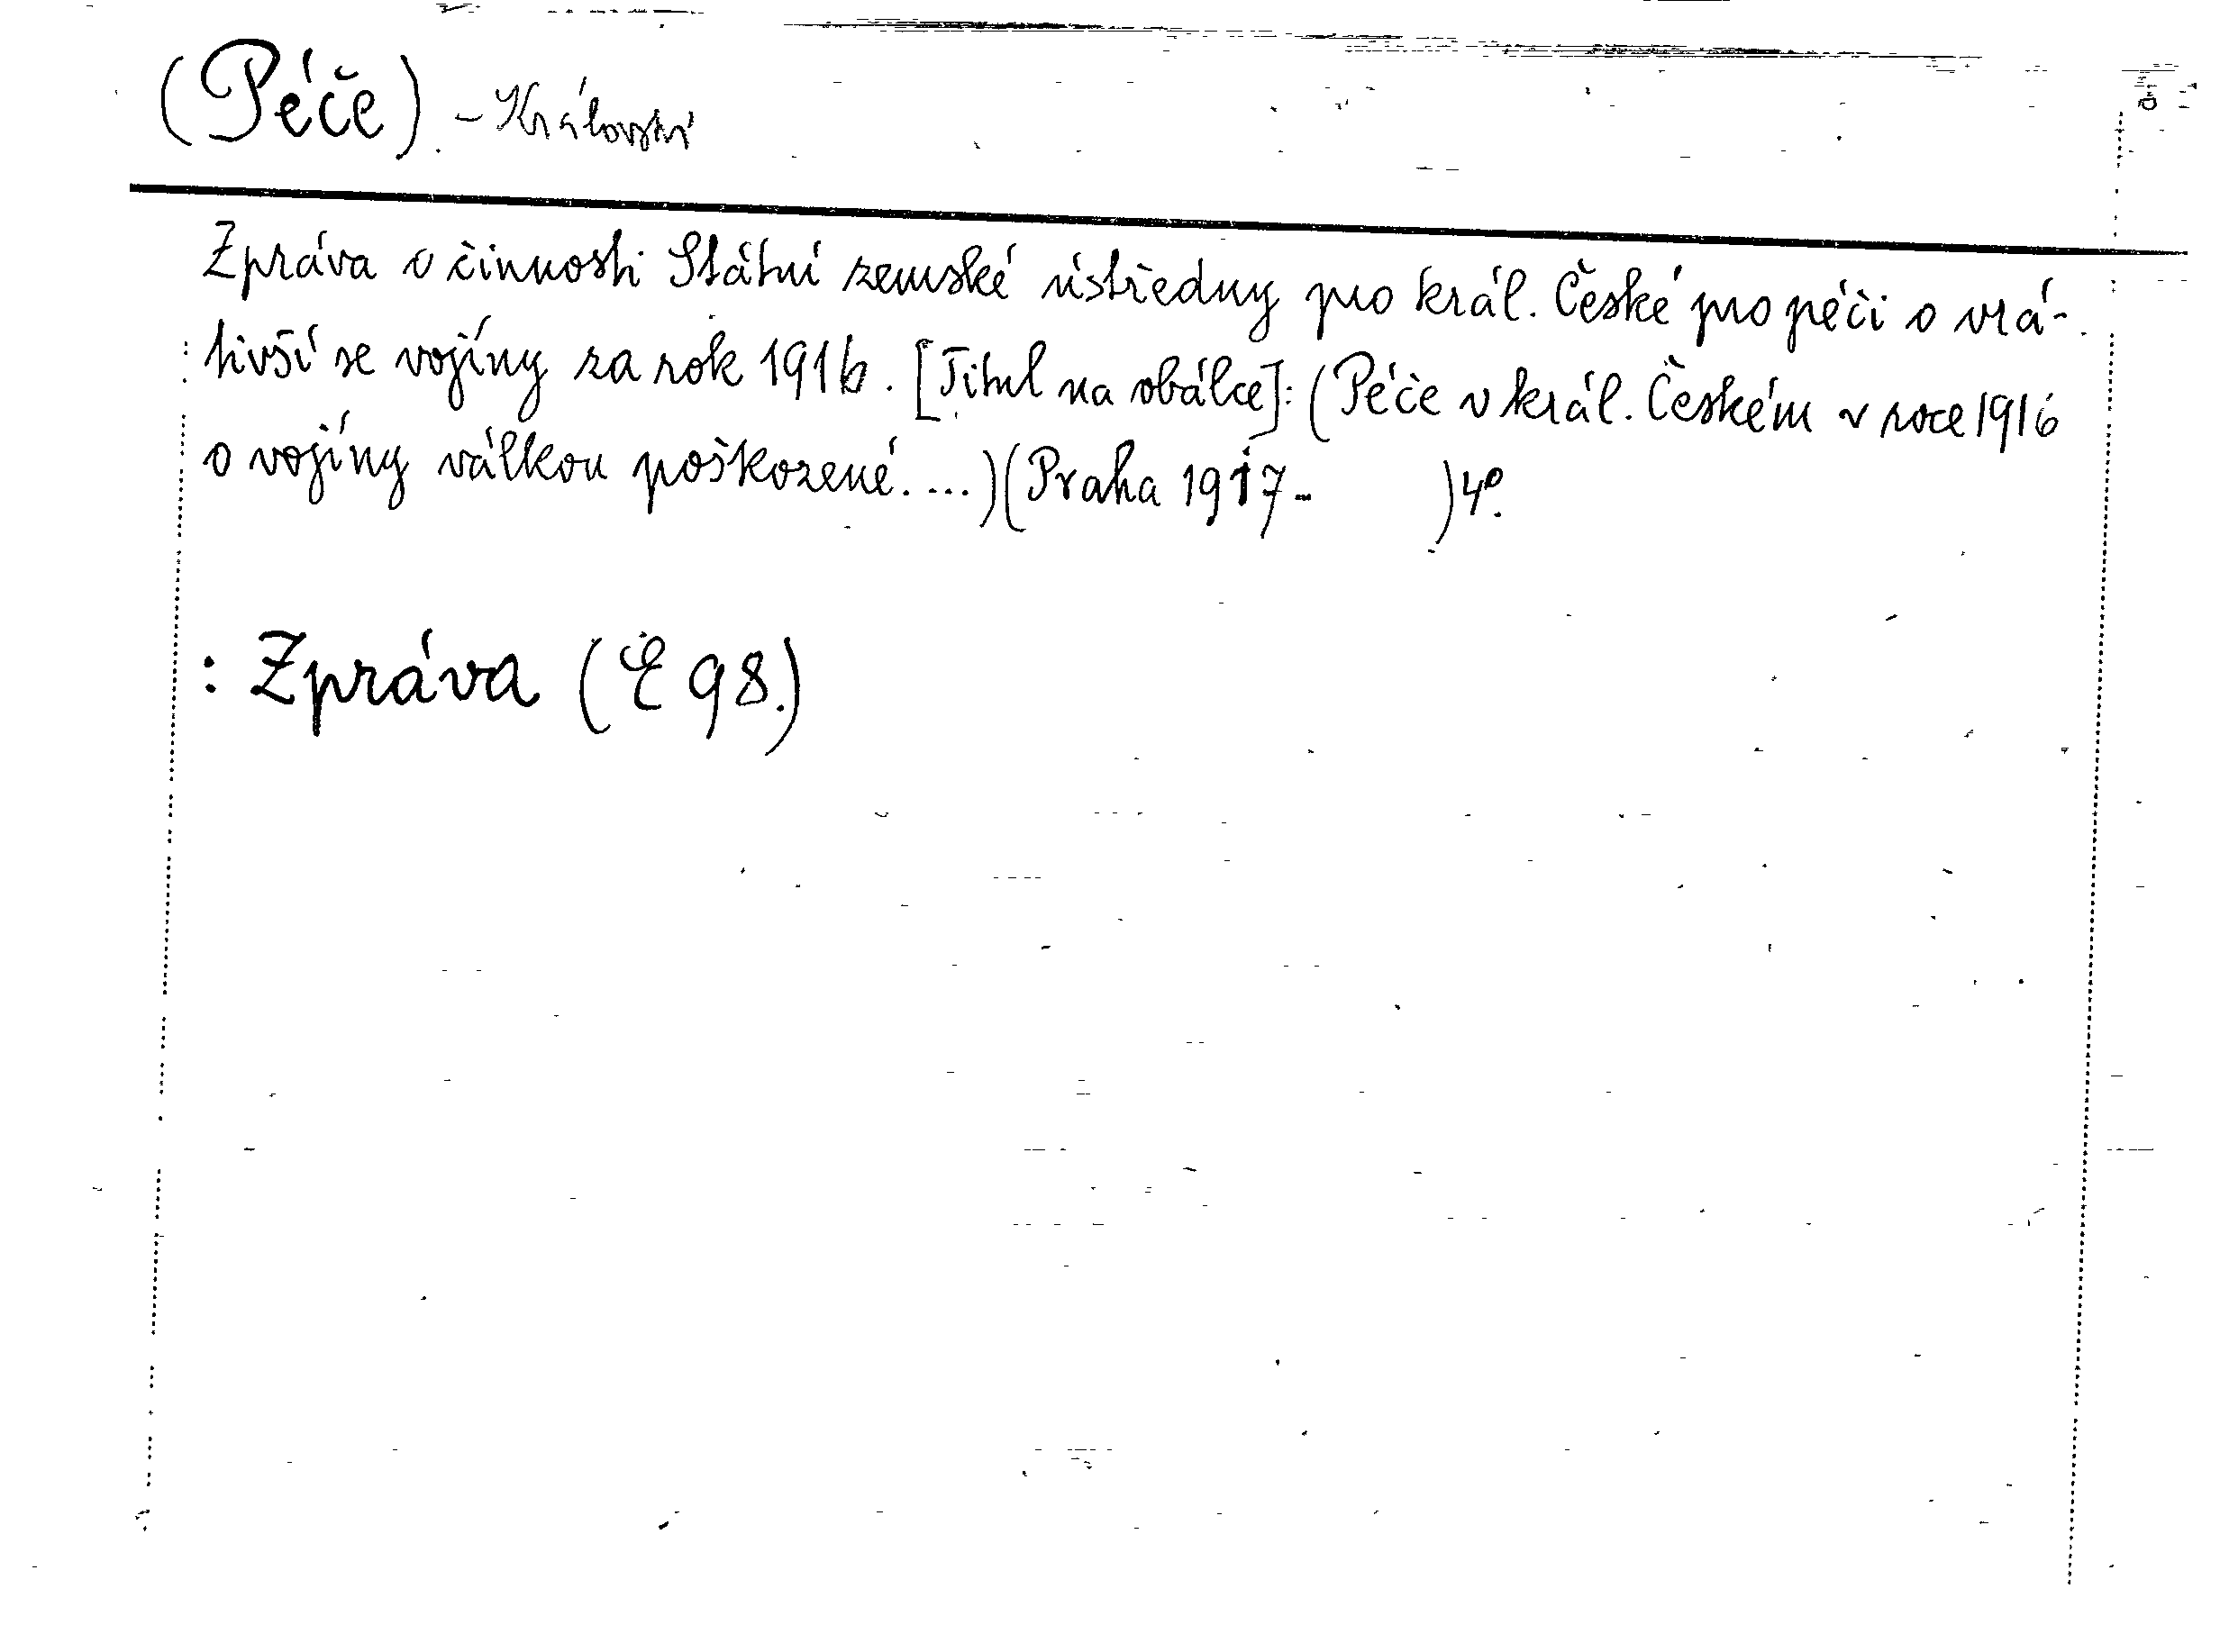 (Péče) - Království
Zpráva o činnosti Státní zemské ústředny pro král. České pro péči o vrá-
tivší se vojíny za rok 1916. [Titul na obálce]: (Péče v král. Českém v roce 1916
o vojíny válkou poškozené....) (Praha 1917- ) 4°.
: Zpráva (E 98.)